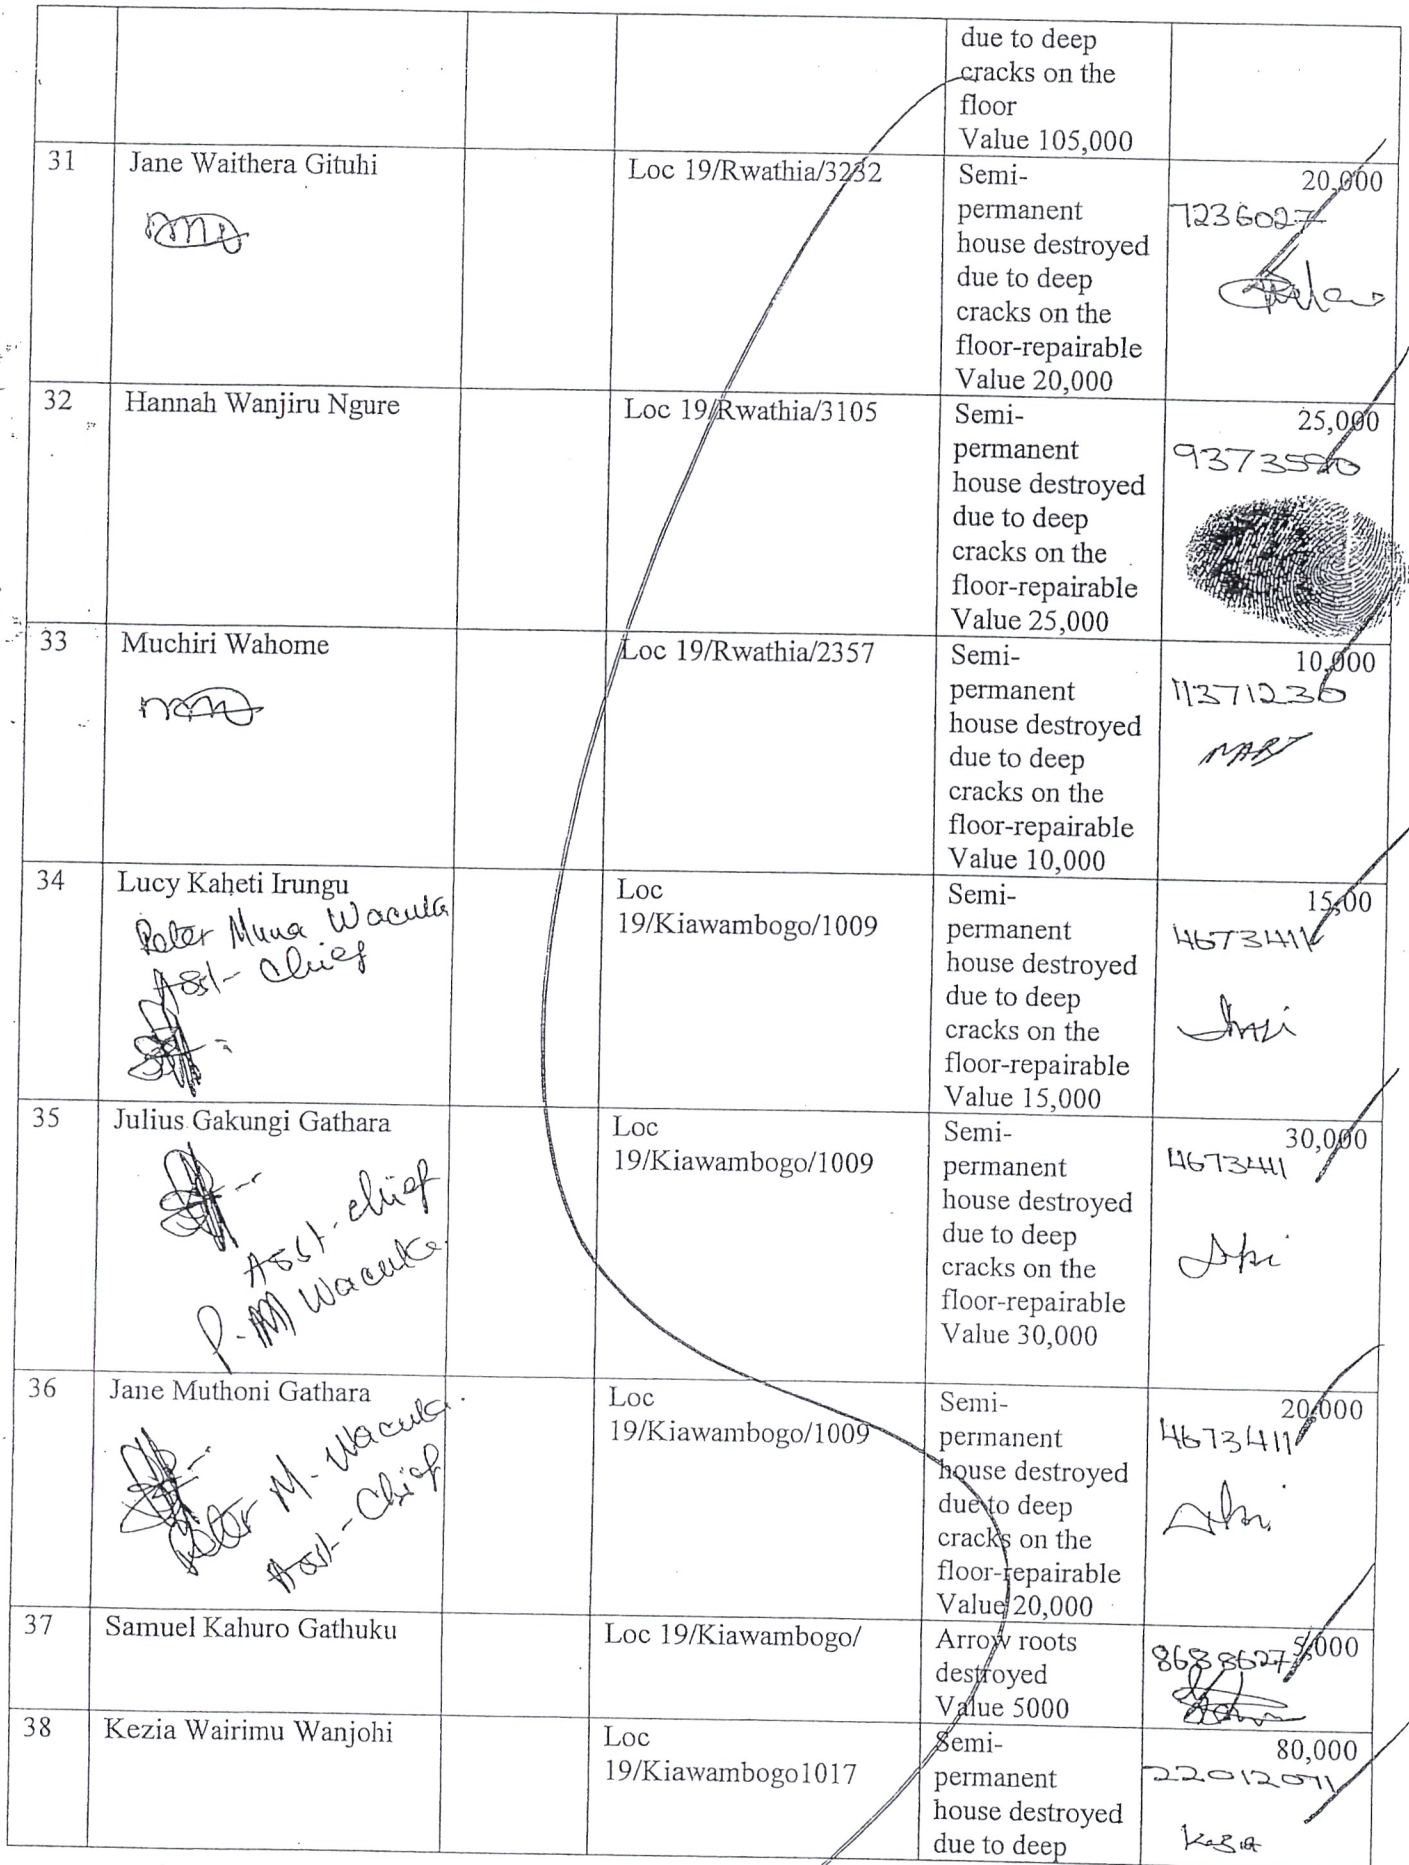 due to deep
cracks on the
floor
Value 105,000
31
Jane Waithera Gituhi
Loc 19/Rwathia/3232
Semi-
permanent
house destroyed
due to deep
cracks on the
floor-repairable
Value 20,000
20,000
7236027
32
Hannah Wanjiru Ngure
Loc 19/Rwathia/3105
Semi-
permanent
house destroyed
due to deep
cracks on the
floor-repairable
Value 25,000
25,000
9373590
33
Muchiri Wahome
Loc 19/Rwathia/2357
Semi-
permanent
house destroyed
due to deep
cracks on the
floor-repairable
Value 10,000
10,000
11371230
34
Lucy Kaheti Irungu
Peter Muna Wacuka
Asst- Chief
Loc
19/Kiawambogo/1009
Semi-
permanent
house destroyed
due to deep
cracks on the
floor-repairable
Value 15,000
15,00
4673411
35
Julius Gakungi Gathara
Asst- chief
P. M Wacuka
Loc
19/Kiawambogo/1009
Semi-
permanent
house destroyed
due to deep
cracks on the
floor-repairable
Value 30,000
30,000
4673411
36
Jane Muthoni Gathara
Peter M- Wacuka.
Asst- Chief
Loc
19/Kiawambogo/1009
Semi-
permanent
house destroyed
due to deep
cracks on the
floor-repairable
Value 20,000
20,000
4673411
37
Samuel Kahuro Gathuku
Loc 19/Kiawambogo/
Arrow roots
destroyed
Value 5000
5,000
8688627
38
Kezia Wairimu Wanjohi
Loc
19/Kiawambogo1017
Semi-
permanent
house destroyed
due to deep
80,000
22012071